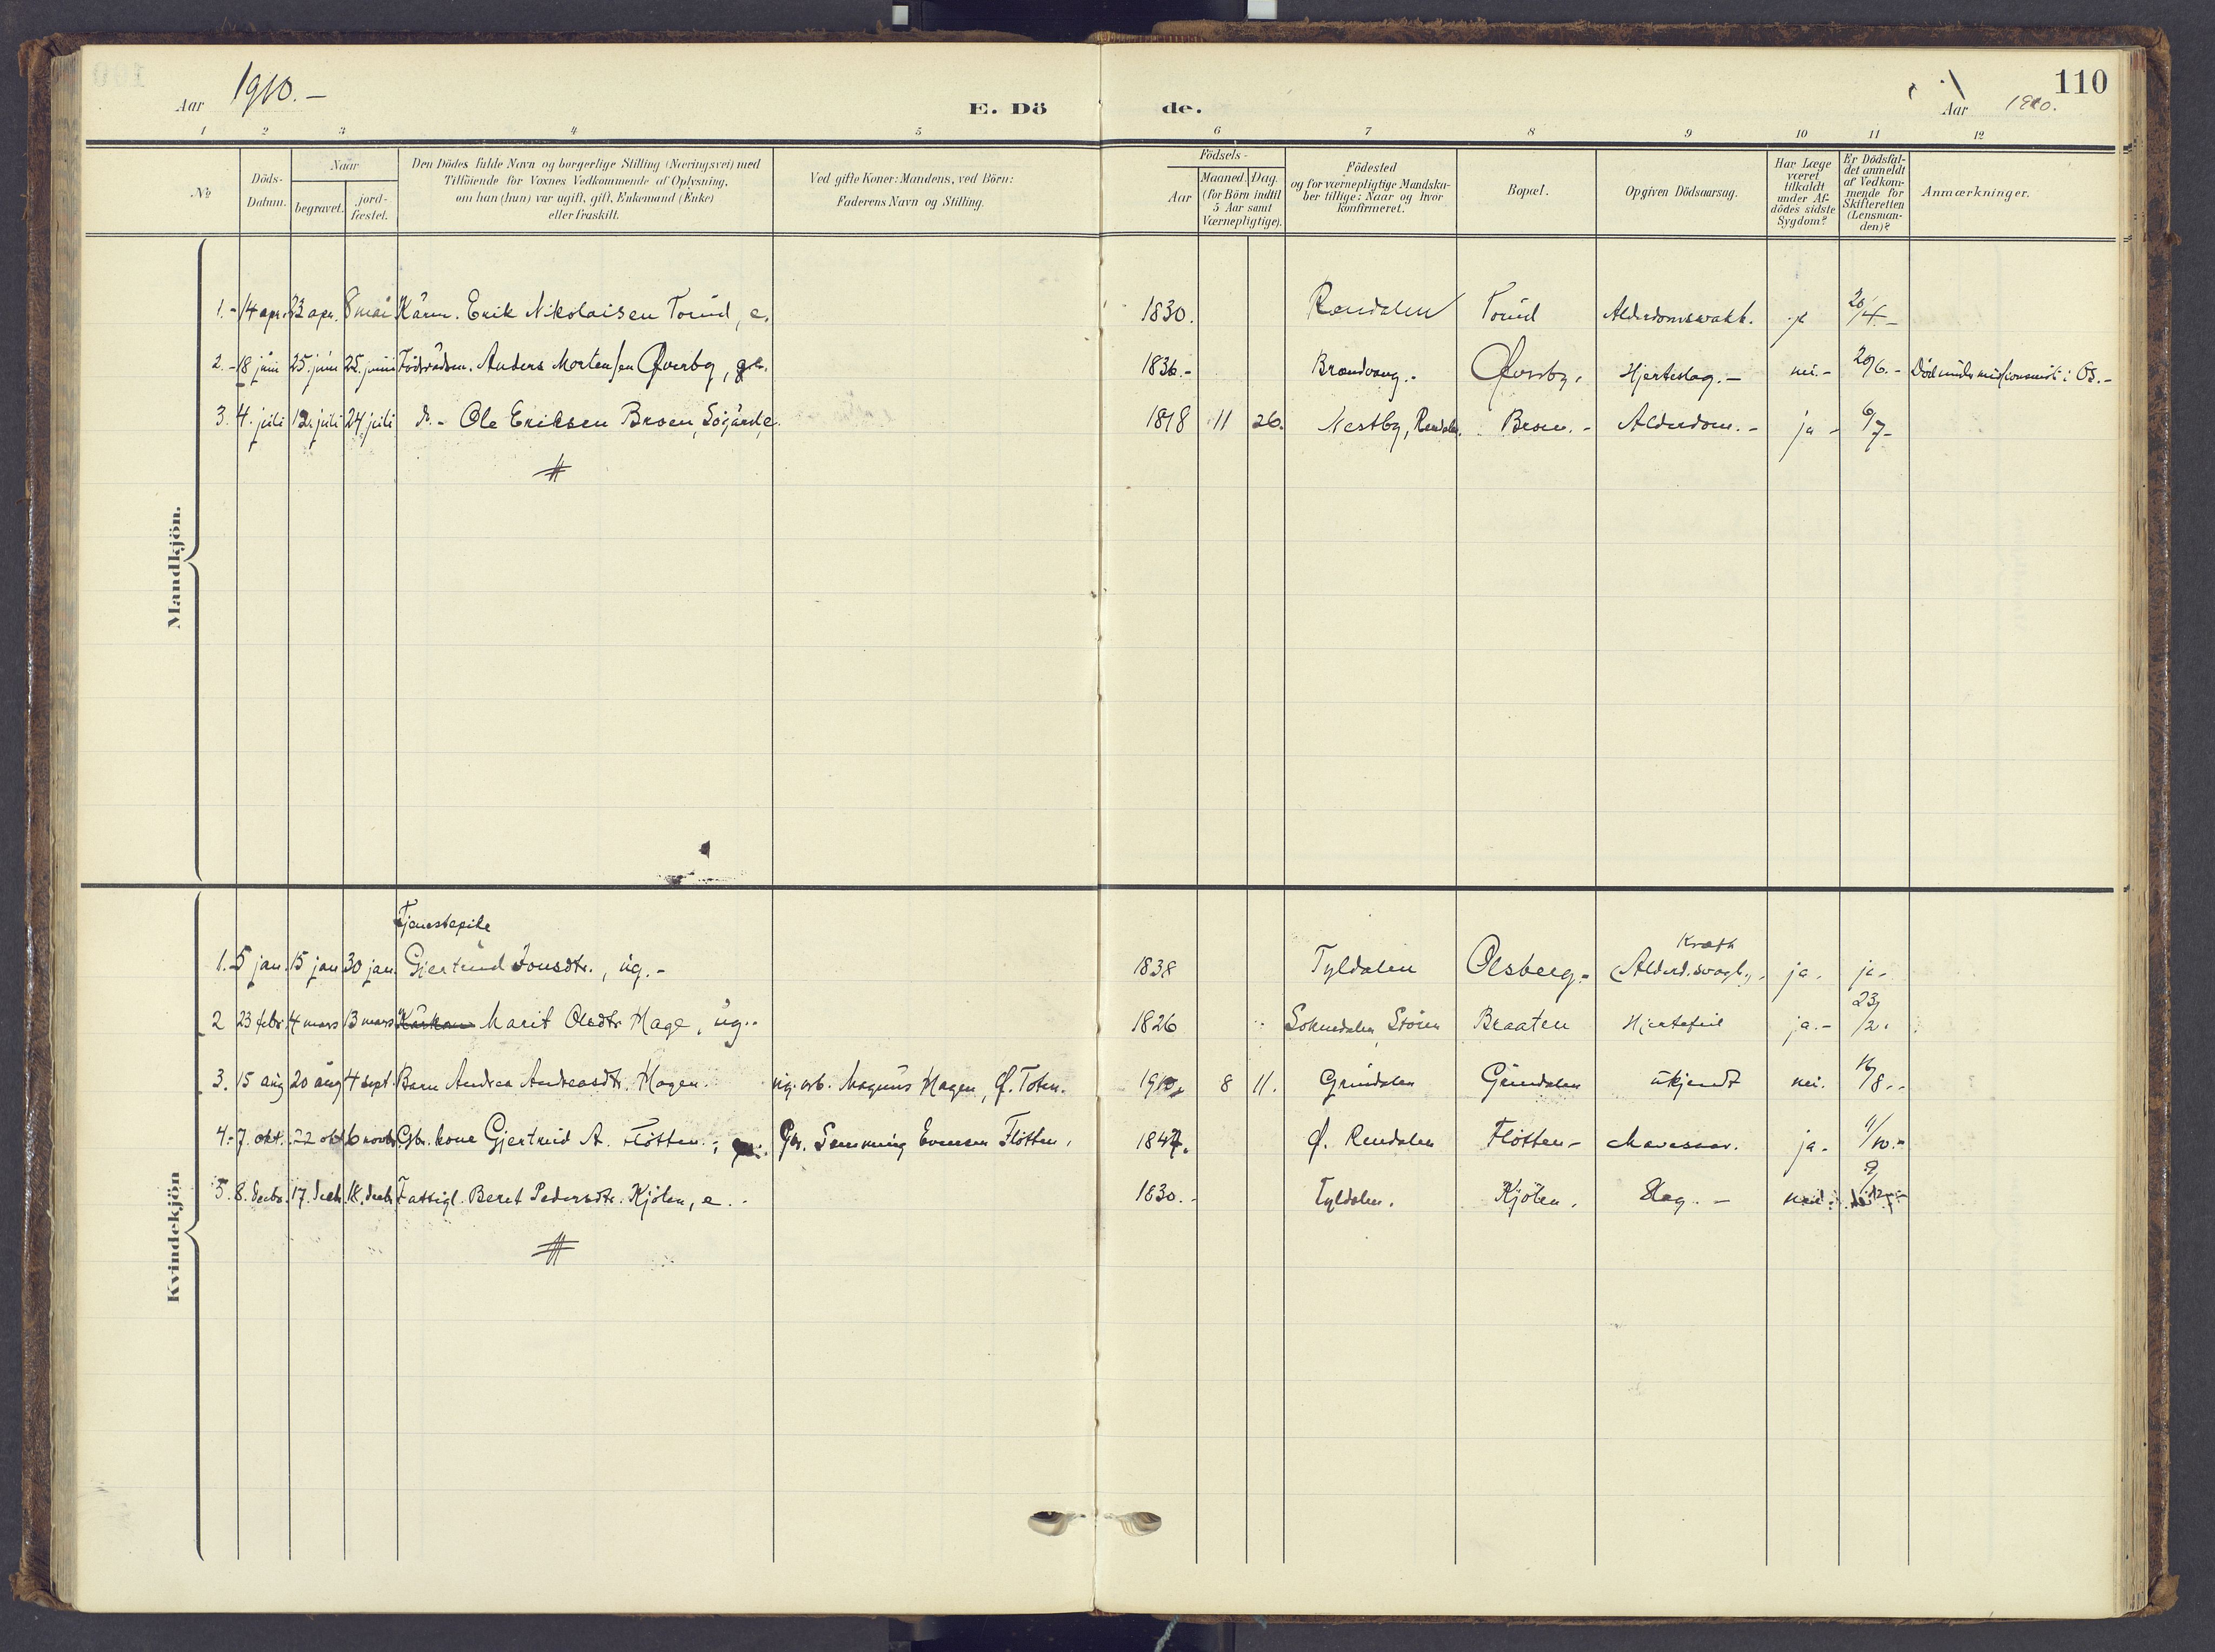 Aar 1910.-
E. Dö de.
Aar 1910.
110
1 2 3 4 5 6 7 8 9 10 11 12
№
Döds-Datum.
Naar
begravet.
jord-fæstet.
Den Dödes fulde Navn og borgerlige Stilling (Næringsvei) med
Tilföiende for Voxnes Vedkommende af Oplysning,
om han (hun) var ugift, gift, Enkemand (Enke)
eller fraskilt.
Ved gifte Koner: Mandens, ved Börn:
Faderens Navn og Stilling.
Födsels-
Aar
Maaned. Dag.
(for Börn indtil
5 Aar samt
Værnepligtige).
Födested
og for værnepligtige Mandska-
ber tillige: Naar og hvor
konfirmeret.
Bopæl.
Opgiven Dödsaarsag.
Har Læge
været
tilkaldt
under Af-
dödes sidste
Sygdom?
Er Dödsfal-
det anmeldt
af Vedkom-
mende for
Skifteretten
(Lensman-
den)?
Anmærkninger.
Mandkjön.
1.- 14 apr. 23 apr. 8 mai Kårm. Erik Nikolaisen Torud, e. 1830. Rendalen Torud Alderdomssvakh. ja 20/4.-
2.- 18 juni 25. juni 25. juni Föderådsm. Anders Mortensen Øverby, g. 1836.- Brandvang.- Øversby. Hjerteslag.- nei.- 20/6.- Död under missionsmöte i Os.-
3. 4. juli 12. juli 24 juli do.- Ole Eriksen Broen, Sögård, e. 1818 11 26. Nestby, Rendalen. Broen.- Alderdom.- ja- 6/7-
Kvindekjön
Tjenestepike
1. 5 jan. 15 jan 30 jan. Gjertrud Jonsdtr., ug.- 1838 Tyldalen Olsberg.- Kræft (Alderd.svagh.) - ja. ja-
2 23 febr. 4 mars 13 mars Marit Olsdtr Hage, ug.. 1826 Soknedalen, Stören Braaten Hjertefeil ja.- 23/2.
3. 15 aug 20 aug 4 sept. Barn Andrea Andreasdtr. Hagen. ug. arb. Magnus Hagen, Ø. Toten. 1910 8 11. Grundalen Grundalen ukjendt nei. 16/8.-
4.- 7. okt. 22 okt 6 novbr. Gbr. kone Gjertrud A. Flötten.; Gbr. Simming Evensen Flötten, 1847. Ø. Rendalen Flötten- Mavesaar. ja- 11/10.-
5. 8. decbr. 17. decb. 18. decb. Fattigl. Beret Pedersdtr. Kjölen, e.. 1830.- Tyldalen. Kjölen. Slag.- nei. 9/12.-